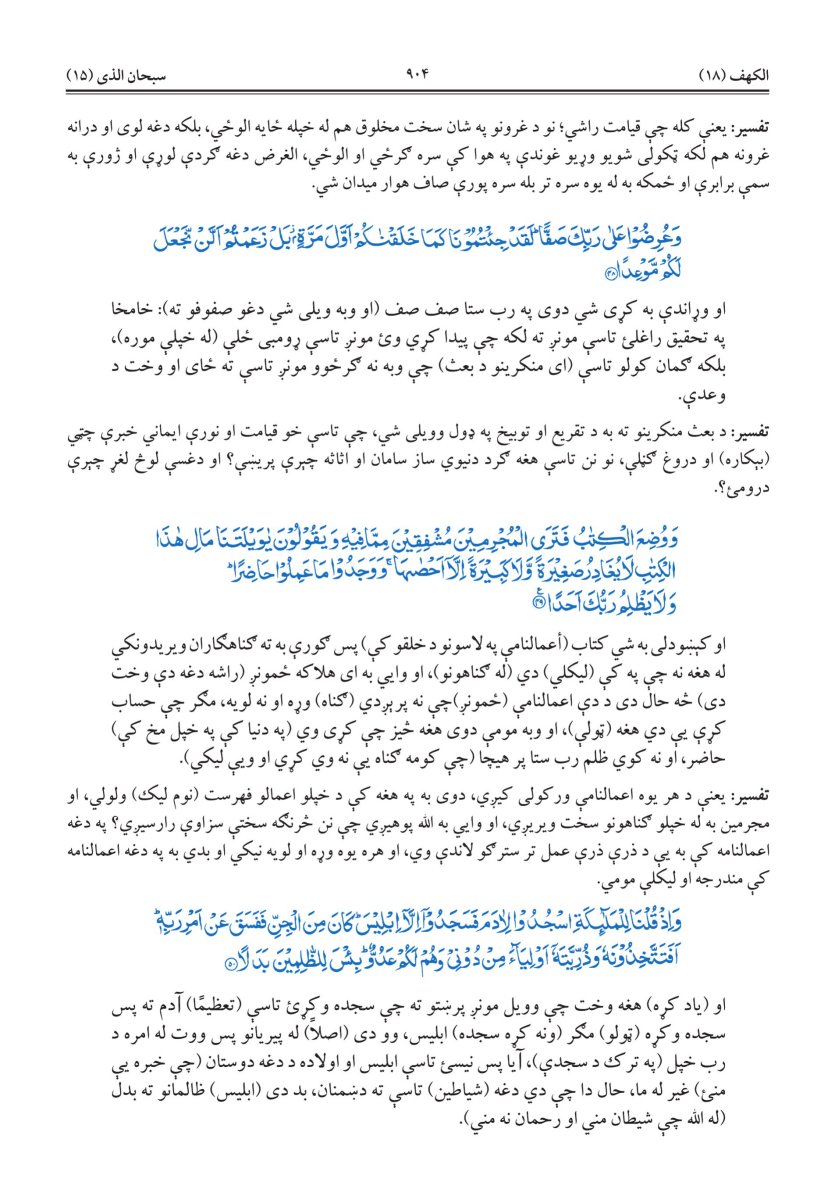 الكهف (۱۸)
۹۰۴
سبحان الذی (۱۵)
تفسير: يعنې كله چې قيامت راشي؛ نو د غرونو په شان سخت مخلوق هم له خپله ځايه الوځي، بلكه دغه لوی او درانه
غرونه هم لكه ټكولی شويو وړيو غوندې په هوا كې سره گرځي او الوځي، الغرض دغه گردې لوړې او ژورې به
سمې برابرې او ځمكه به له يوه سره تر بله سره پورې صاف هوار ميدان شي.
وَعُرِضُوْا عَلٰى رَبِّكَ صَفًّا ۗ لَقَدْ جِئْتُمُوْنَا كَمَا خَلَقْنٰكُمْ اَوَّلَ مَرَّةٍۢ ۖ بَلْ زَعَمْتُمْ اَلَّنْ نَّجْعَلَ
لَكُمْ مَّوْعِدًا ﴿۴۸﴾
او وړاندې به كړی شي دوی په رب ستا صف صف (او وبه ويلی شي دغو صفوفو ته): خامخا
په تحقيق راغلئ تاسې مونږ ته لكه چې پيدا كړي وئ مونږ تاسې ړومبی ځلې (له خپلې موره)،
بلكه گمان كولو تاسې (ای منكرينو د بعث) چې وبه نه گرځوو مونږ تاسې ته ځای او وخت د
وعدې.
تفسير: د بعث منكرينو ته به د تقريع او توبيخ په ډول وويلی شي، چې تاسې خو قيامت او نورې ايماني خبرې چټي
(بېكاره) او دروغ گڼلې، نو نن تاسې هغه گرد دنيوي ساز سامان او اثاثه چېرې پريښې؟ او دغسې لوڅ لغړ چېرې
درومئ؟.
وَوُضِعَ الْكِتٰبُ فَتَرَى الْمُجْرِمِيْنَ مُشْفِقِيْنَ مِمَّا فِيْهِ وَيَقُوْلُوْنَ يٰوَيْلَتَنَا مَالِ هٰذَا
الْكِتٰبِ لَا يُغَادِرُ صَغِيْرَةً وَّلَا كَبِيْرَةً اِلَّآ اَحْصٰىهَا ۚ وَوَجَدُوْا مَا عَمِلُوْا حَاضِرًا ۗ
وَلَا يَظْلِمُ رَبُّكَ اَحَدًا ﴿۴۹﴾
او كېښودلی به شي كتاب (أعمالنامې په لاسونو د خلقو كې) پس گورې به ته گناهگاران ويريدونكي
له هغه نه چې په كې (ليكلي) دي (له گناهونو)، او وايي به ای هلاكه ځمونږ (راشه دغه دې وخت
دی) څه حال دی د دې اعمالنامې (ځمونږ)چې نه پرېږدي (گناه) وړه او نه لويه، مگر چې حساب
كړې يې دي هغه (ټولې)، او وبه مومې دوی هغه څيز چې كړی وي (په دنيا كې په خپل مخ كې)
حاضر، او نه كوي ظلم رب ستا پر هيچا (چې كومه گناه يې نه وي كړې او ويې ليكي).
تفسير: يعنې د هر يوه اعمالنامې وركولی كيږي، دوی به په هغه كې د خپلو اعمالو فهرست (نوم ليک) ولولي، او
مجرمين به له خپلو گناهونو سخت ويريږي، او وايي به الله پوهيږي چې نن څرنگه سختې سزاوې رارسيږي؟ په دغه
اعمالنامه كې به يې د ذرې ذرې عمل تر سترگو لاندې وي، او هره يوه وړه او لويه نيكي او بدي به په دغه اعمالنامه
كې مندرجه او ليكلې مومي.
وَاِذْ قُلْنَا لِلْمَلٰٓئِكَةِ اسْجُدُوْا لِاٰدَمَ فَسَجَدُوْٓا اِلَّآ اِبْلِيْسَ ۗ كَانَ مِنَ الْجِنِّ فَفَسَقَ عَنْ اَمْرِ رَبِّهٖ ۗ
اَفَتَتَّخِذُوْنَهٗ وَذُرِّيَّتَهٗٓ اَوْلِيَآءَ مِنْ دُوْنِيْ وَهُمْ لَكُمْ عَدُوٌّ ۗ بِئْسَ لِلظّٰلِمِيْنَ بَدَلًا ﴿۵۰﴾
او (ياد كړه) هغه وخت چې وويل مونږ پرښتو ته چې سجده وكړئ تاسې (تعظيمًا) آدم ته پس
سجده وكړه (ټولو) مگر (ونه كړه سجده) ابليس، وو دی (اصلاً) له پيريانو پس ووت له امره د
رب خپل (په ترک د سجدې)، آيا پس نيسئ تاسې ابليس او اولاده د دغه دوستان (چې خبره يې
منئ) غير له ما، حال دا چې دي دغه (شياطين) تاسې ته دښمنان، بد دی (ابليس) ظالمانو ته بدل
(له الله چې شيطان مني او رحمان نه مني).